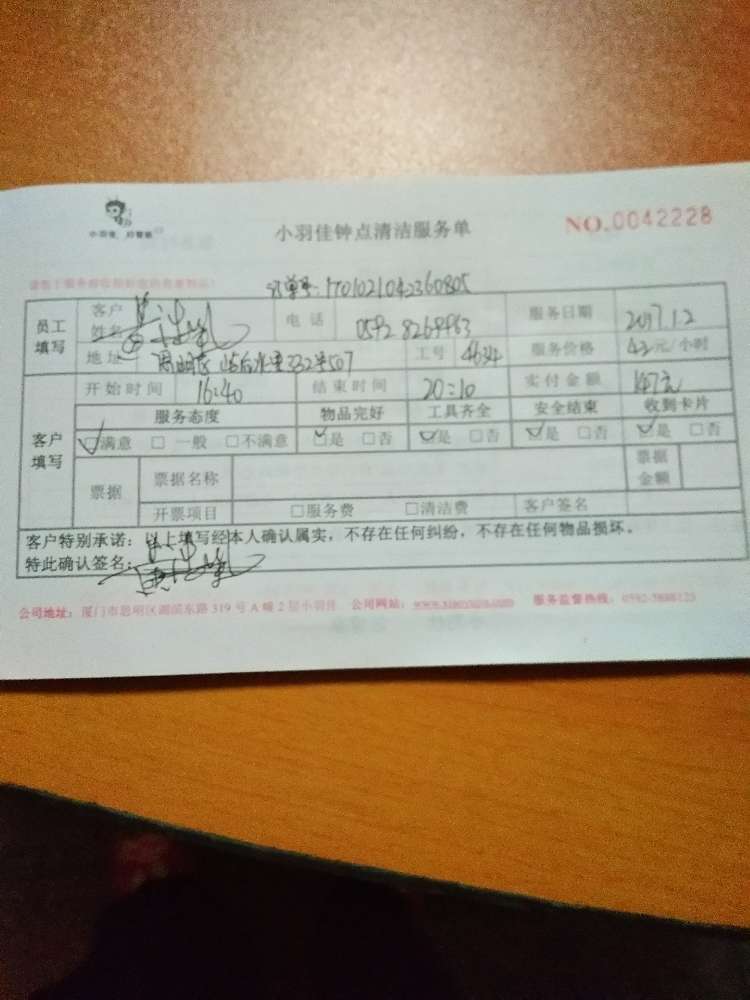 小羽佳 好管家
小羽佳钟点清洁服务单
NO.0042228
订单号:1701021042360805
员工填写 客户姓名 电话 0592 8269463 服务日期 2017.1.2
地址 332 507 工号 4634 服务价格 42元/小时
客户填写 开始时间 16:40 结束时间 20:10 实付金额 147元
服务态度 物品完好 工具齐全 安全结束 收到卡片
☑满意 □一般 □不满意 ☑是 □否 ☑是 □否 ☑是 □否 ☑是 □否
票据 票据名称 票据金额
开票项目 □服务费 □清洁费 客户签名
客户特别承诺:以上填写经本人确认属实,不存在任何纠纷,不存在任何物品损坏。
特此确认签名:
公司地址:厦门市思明区湖滨东路 319 号 A 幢 2 层小羽佳 公司网站: 服务监督热线: